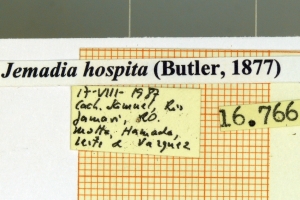 Jemadia hospita (Butler, 1877)
17-VIII-1987
Cach. Samuel, Rio
Jamari, RO.
Motta, Hamada,
Leite & Vazquez
16.766